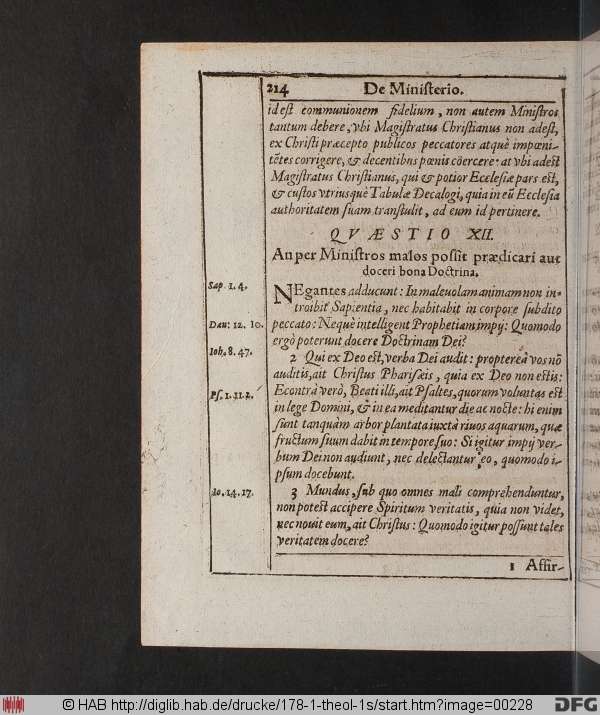 214 De Miniſterio.
id eſt communionem fidelium, non autem Miniſtros
tantum debere, vbi Magiſtratus Chriſtianus non adeſt,
ex Chriſti præcepto publicos peccatores atquè impœni-
tētes corrigere, & decentibus pœnis cöercere: at vbi adeſt
Magiſtratus Chriſtianus, qui & potior Eccleſiæ pars eſt,
& cuſtos vtriusquè Tabulæ Decalogi, quia in eū Eccleſia
authoritatem ſuam tranſtulit, ad eum id pertinere.
QVÆSTIO XII.
An per Miniſtros malos poſſit prædicari aut
doceri bona Doctrina.
Sap. 1. 4.
NEgantes adducunt: In malevolam animam non in-
troibit Sapientia, nec habitabit in corpore ſubdito
Dan: 12. 10.
peccato: Nequè intelligent Prophetiam impij: Quomodo
ergò poterunt docere Doctrinam Dei?
Ioh. 8. 47.
2 Qui ex Deo eſt, verba Dei audit: proptereà vos nō
auditis, ait Chriſtus Phariſæis, quia ex Deo non eſtis:
Pſ. 1. 1 1. 2.
Econtrà verò, Beati illi, ait Pſaltes, quorum voluntas eſt
in lege Domini, & in ea meditantur die ac nocte: hi enim
ſunt tanquàm arbor plantata iuxtà rivos aquarum, quæ
fructum ſuum dabit in tempore ſuo: Si igitur impij ver-
bum Dei non audiunt, nec delectantur eo, quomodo i-
pſum docebunt.
Io. 14. 17.
3 Mundus, ſub quo omnes mali comprehenduntur,
non poteſt accipere Spiritum veritatis, quia non videt,
nec novit eum, ait Chriſtus: Quomodo igitur poſſunt tales
veritatem docere?
1 Affir-
© HAB http://diglib.hab.de/drucke/178-1-theol-1s/start.htm?image=00228
DFG